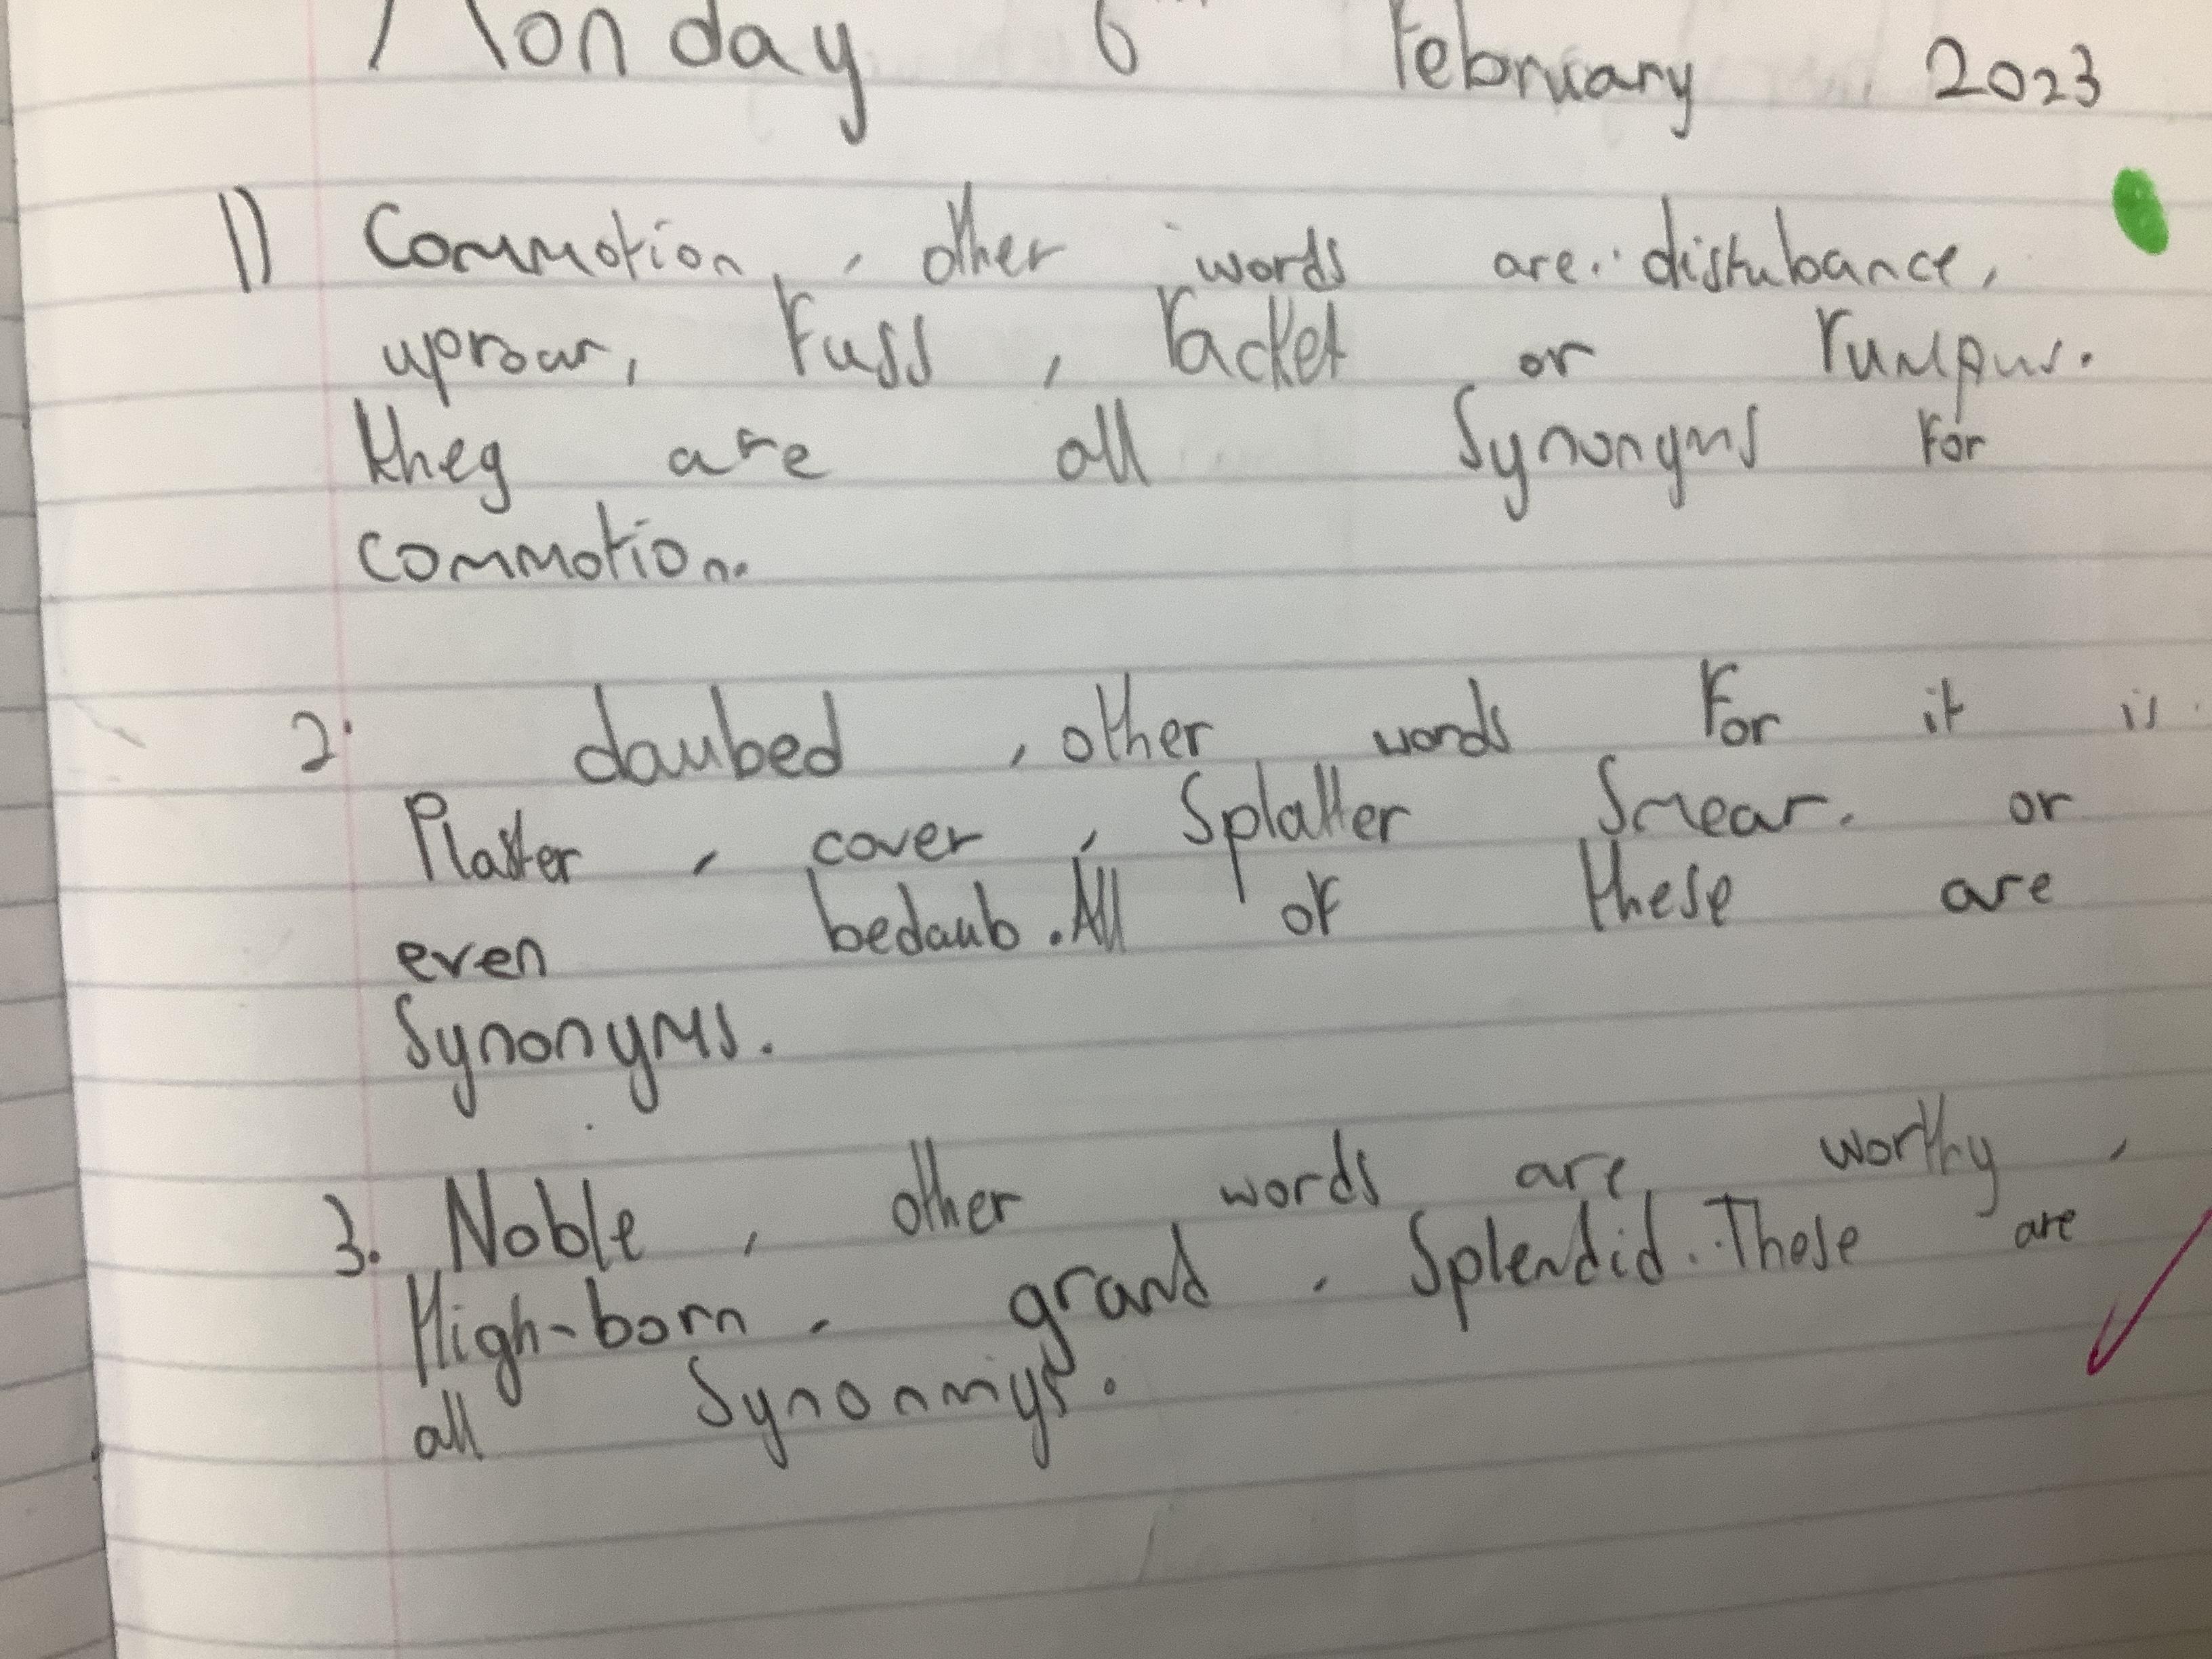 Monday 6th February 2023
1) Commotion, other words are: distubance,
uproar, Fuss, racket or rumpus.
they are all Synonyms For
commotion.
2. daubed, other words For it is
Plaster, cover, Splatter Smear. or
even bedaub. All of these are
Synonyms.
3. Noble, other words are worthy,
High-born, grand, Splendid. These are
all Synonmys.